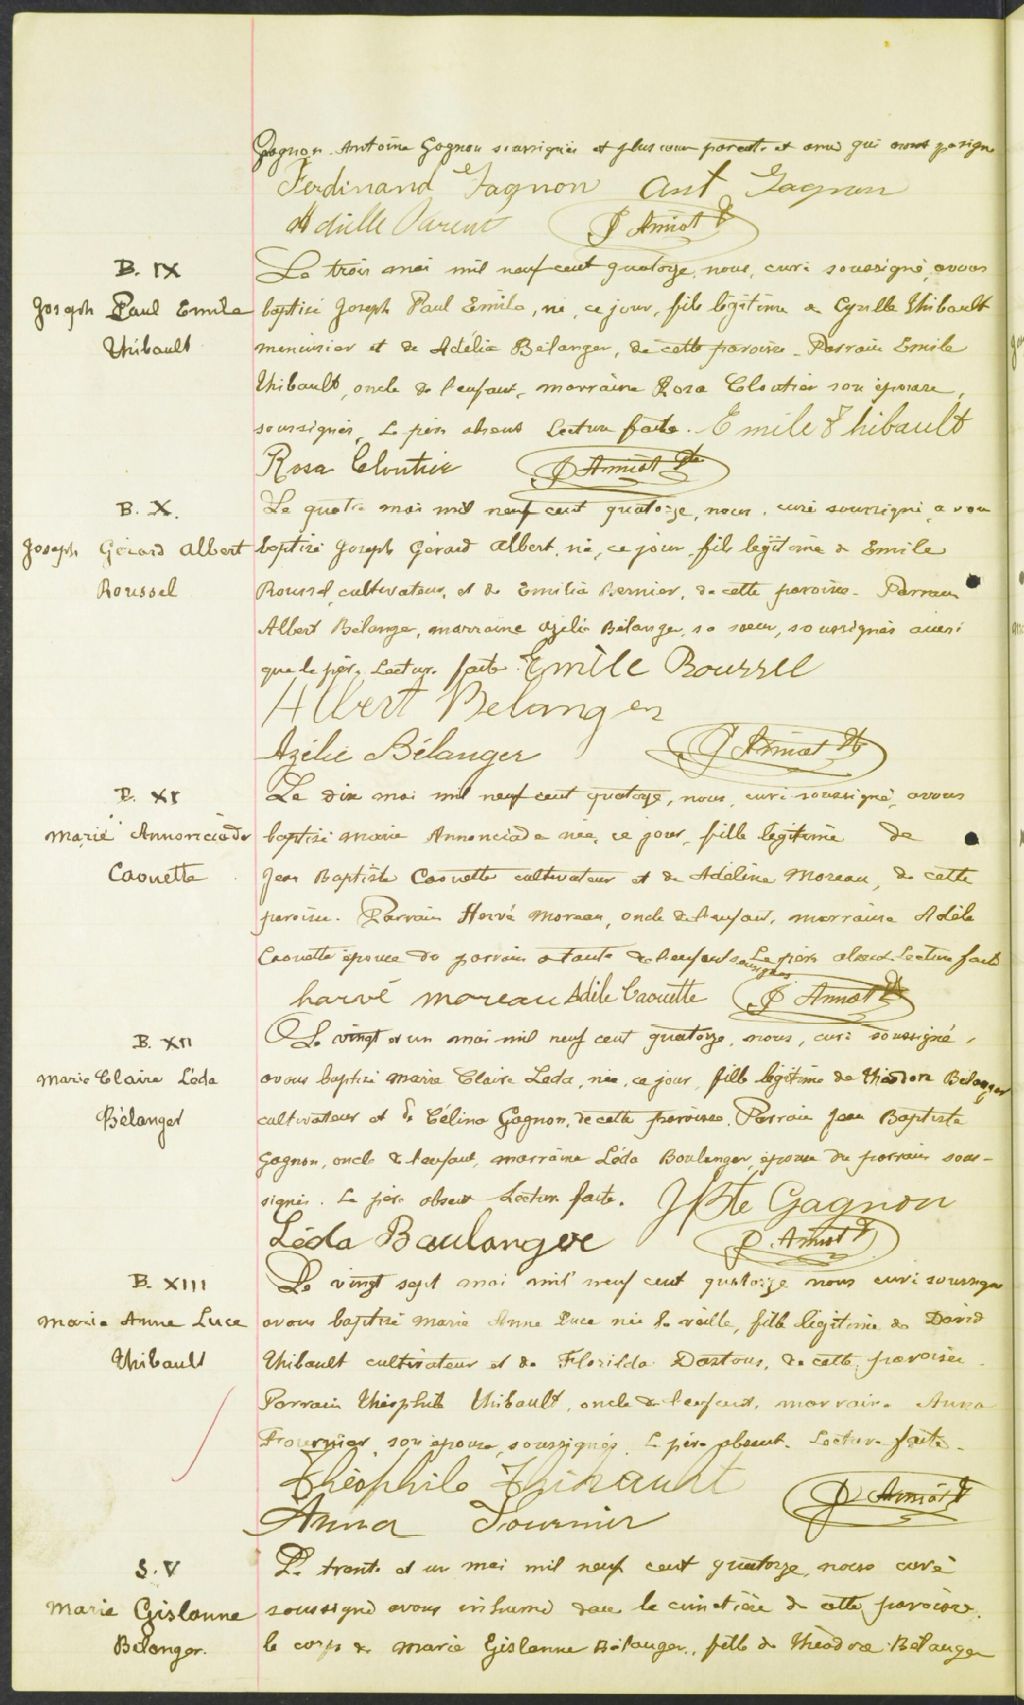 Gagnon Antoine Gagnon soussignés et plusieurs parents et amis qui n'ont pu signer
Ferdinand Gagnon Ant Gagnon
Adielle Parent P Amiot Ptr
B. IX
Joseph Paul Emile
Thibault
Le trois mai mil neuf cent quatorze, nous, curé soussigné, avons
baptisé Joseph Paul Emile, né, ce jour, fils légitime de Cyrille Thibault
menuisier et de Adélia Bélanger, de cette paroisse. Parrain Emile
Thibault, oncle de l'enfant, marraine Rosa Cloutier son épouse,
soussignés, Le père absent Lecture faite. Emile Thibault
Rosa Cloutier P Amiot Ptr
B. X.
Joseph Gérard Albert
Roussel
Le quatre mai mil neuf cent quatorze, nous, curé soussigné, avons
baptisé Joseph Gérard Albert, né, ce jour, fils légitime de Emile
Roussel, cultivateur, et de Emilia Bernier, de cette paroisse. Parrain
Albert Bélanger, marraine Azélie Bélanger, sa soeur, soussignés ainsi
que le père. Lecture faite. Emile Roussel
Albert Belanger
Azélie Bélanger P Amiot Ptr
B. XI
Marie Annonciade
Caouette
Le dix mai mil neuf cent quatorze, nous, curé soussigné, avons
baptisé Marie Annonciade née, ce jour, fille légitime de
Jean Baptiste Caouette cultivateur et de Adéline Moreau, de cette
paroisse. Parrain Hervé Moreau, oncle de l'enfant, marraine Adèle
Caouette épouse du parrain et tante de l'enfant soussignés Le père absent Lecture faite
harvé moreau Adèle Caouette P Amiot Ptr
B. XII
Marie Claire Léda
Bélanger
Le vingt et un mai mil neuf cent quatorze, nous, curé soussigné,
avons baptisé Marie Claire Leda, née, ce jour, fille légitime de Théodore Bélanger
cultivateur et de Célina Gagnon, de cette paroisse. Parrain Jean Baptiste
Gagnon, oncle de l'enfant, marraine Léda Boulanger, épouse du parrain sous-
signés. Le père absent Lecture faite. J Bte Gagnon
Léda Boulanger P. Amiot Ptr
B. XIII
Marie Anne Luce
Thibault
Le vingt sept mai mil neuf cent quatorze nous curé soussigné
avons baptisé Marie Anne Luce née la veille, fille légitime de David
Thibault cultivateur et de Florilda Dastous, de cette paroisse.
Parrain Théophile Thibault, oncle de l'enfant, marraine Anna
Fournier, son épouse, soussignés. Le père absent. Lecture faite.
Théophile Thibault
Anna Fournier P Amiot Ptr
S. V
Marie Gislanne
Bélanger.
Le trente et un mai mil neuf cent quatorze, nous curé
soussigné avons inhumé dans le cimetière de cette paroisse,
le corps de Marie Gislanne Bélanger, fille de Théodore Bélanger